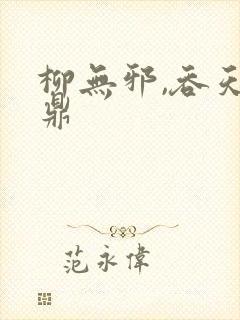 柳無邪,吞天
鼎
范永偉